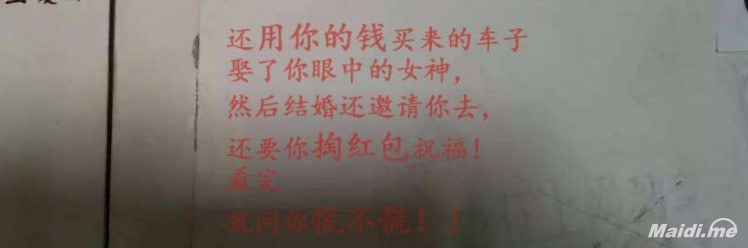 还用你的钱买来的车子
娶了你眼中的女神，
然后结婚还邀请你去，
还要你掏红包祝福！
看完
就问你慌不慌！！
Maidi.me